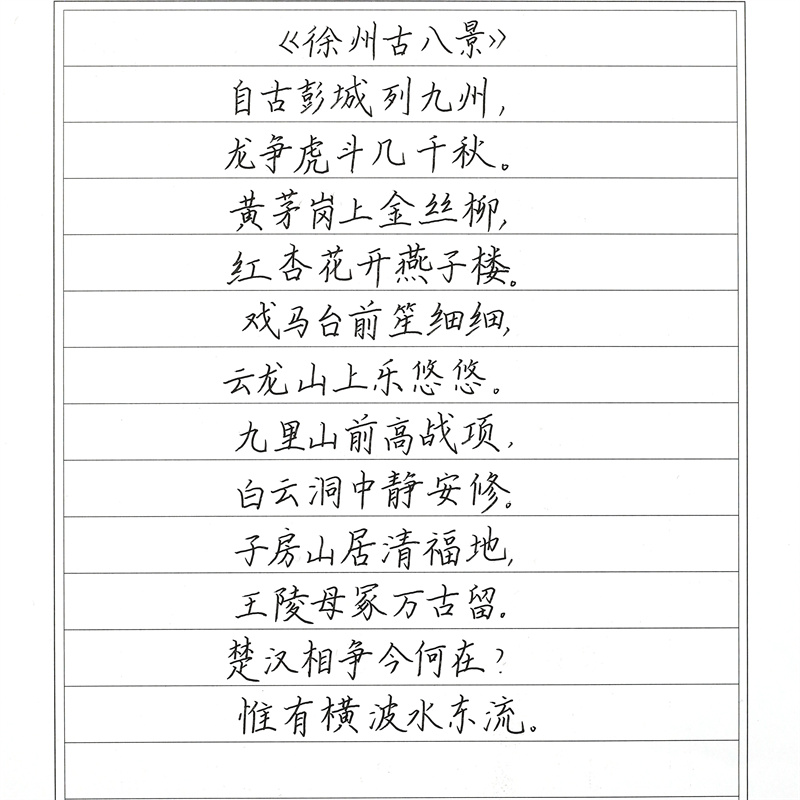 《徐州古八景》
自古彭城列九州,
龙争虎斗几千秋。
黄茅岗上金丝柳,
红杏花开燕子楼。
戏马台前笙细细,
云龙山上乐悠悠。
九里山前高战项,
白云洞中静安修。
子房山居清福地,
王陵母冢万古留。
楚汉相争今何在?
惟有横波水东流。